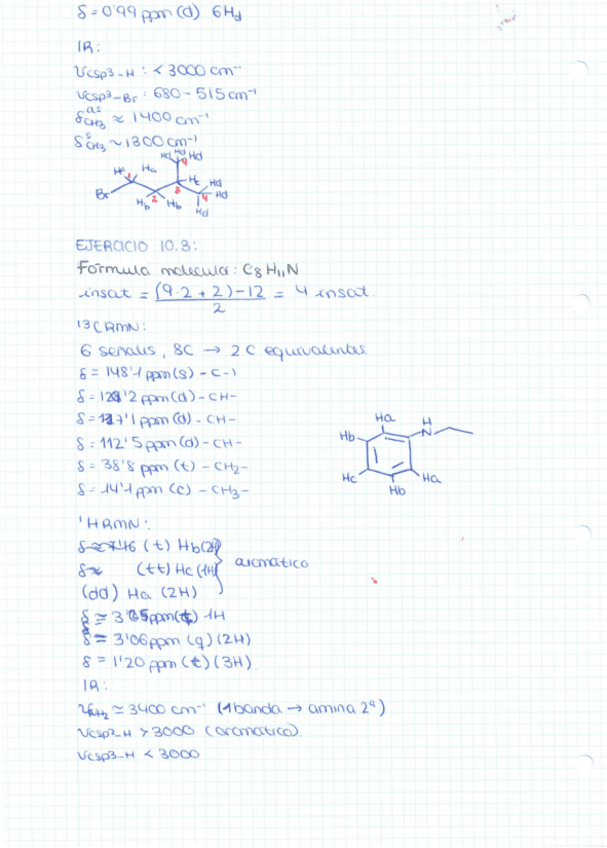 δ = 0'99 ppm (d) 6Hd
IR:
νCsp3-H : < 3000 cm⁻¹
νCsp3-Br : 680 - 515 cm⁻¹
δ as CH3 ≈ 1400 cm⁻¹
δ s CH3 ~ 1300 cm⁻¹
Hd Hd Hd
4
Ha Ha
1
Hc
Hd
Br
3
4
Hd
2
Hb Hb
Hd
EJERCICIO 10.8:
Fórmula molecular: C8 H11 N
insat = (9·2 + 2) - 12 / 2 = 4 insat.
¹³C RMN:
6 señales, 8C → 2 C equivalentes.
δ = 148'1 ppm (s) - C -
δ = 129'2 ppm (d) - CH -
δ = 117'1 ppm (d) - CH -
δ = 112'5 ppm (d) - CH -
δ = 38'8 ppm (t) - CH2 -
δ = 14'1 ppm (c) - CH3 -
Ha
H
N
Hb
Hc
Ha
Hb
¹H RMN:
δ ≈ 7'16 (t) Hb (2H)
δ ≈ (tt) Hc (1H) aromático
(dd) Ha (2H)
δ ≈ ppm 1H
δ = 3'06 ppm (q) (2H)
δ = 1'20 ppm (t) (3H)
IR:
≈ 3400 cm⁻¹ (1 banda → amina 2ª)
νCsp2-H > 3000 (aromático).
νCsp3-H < 3000